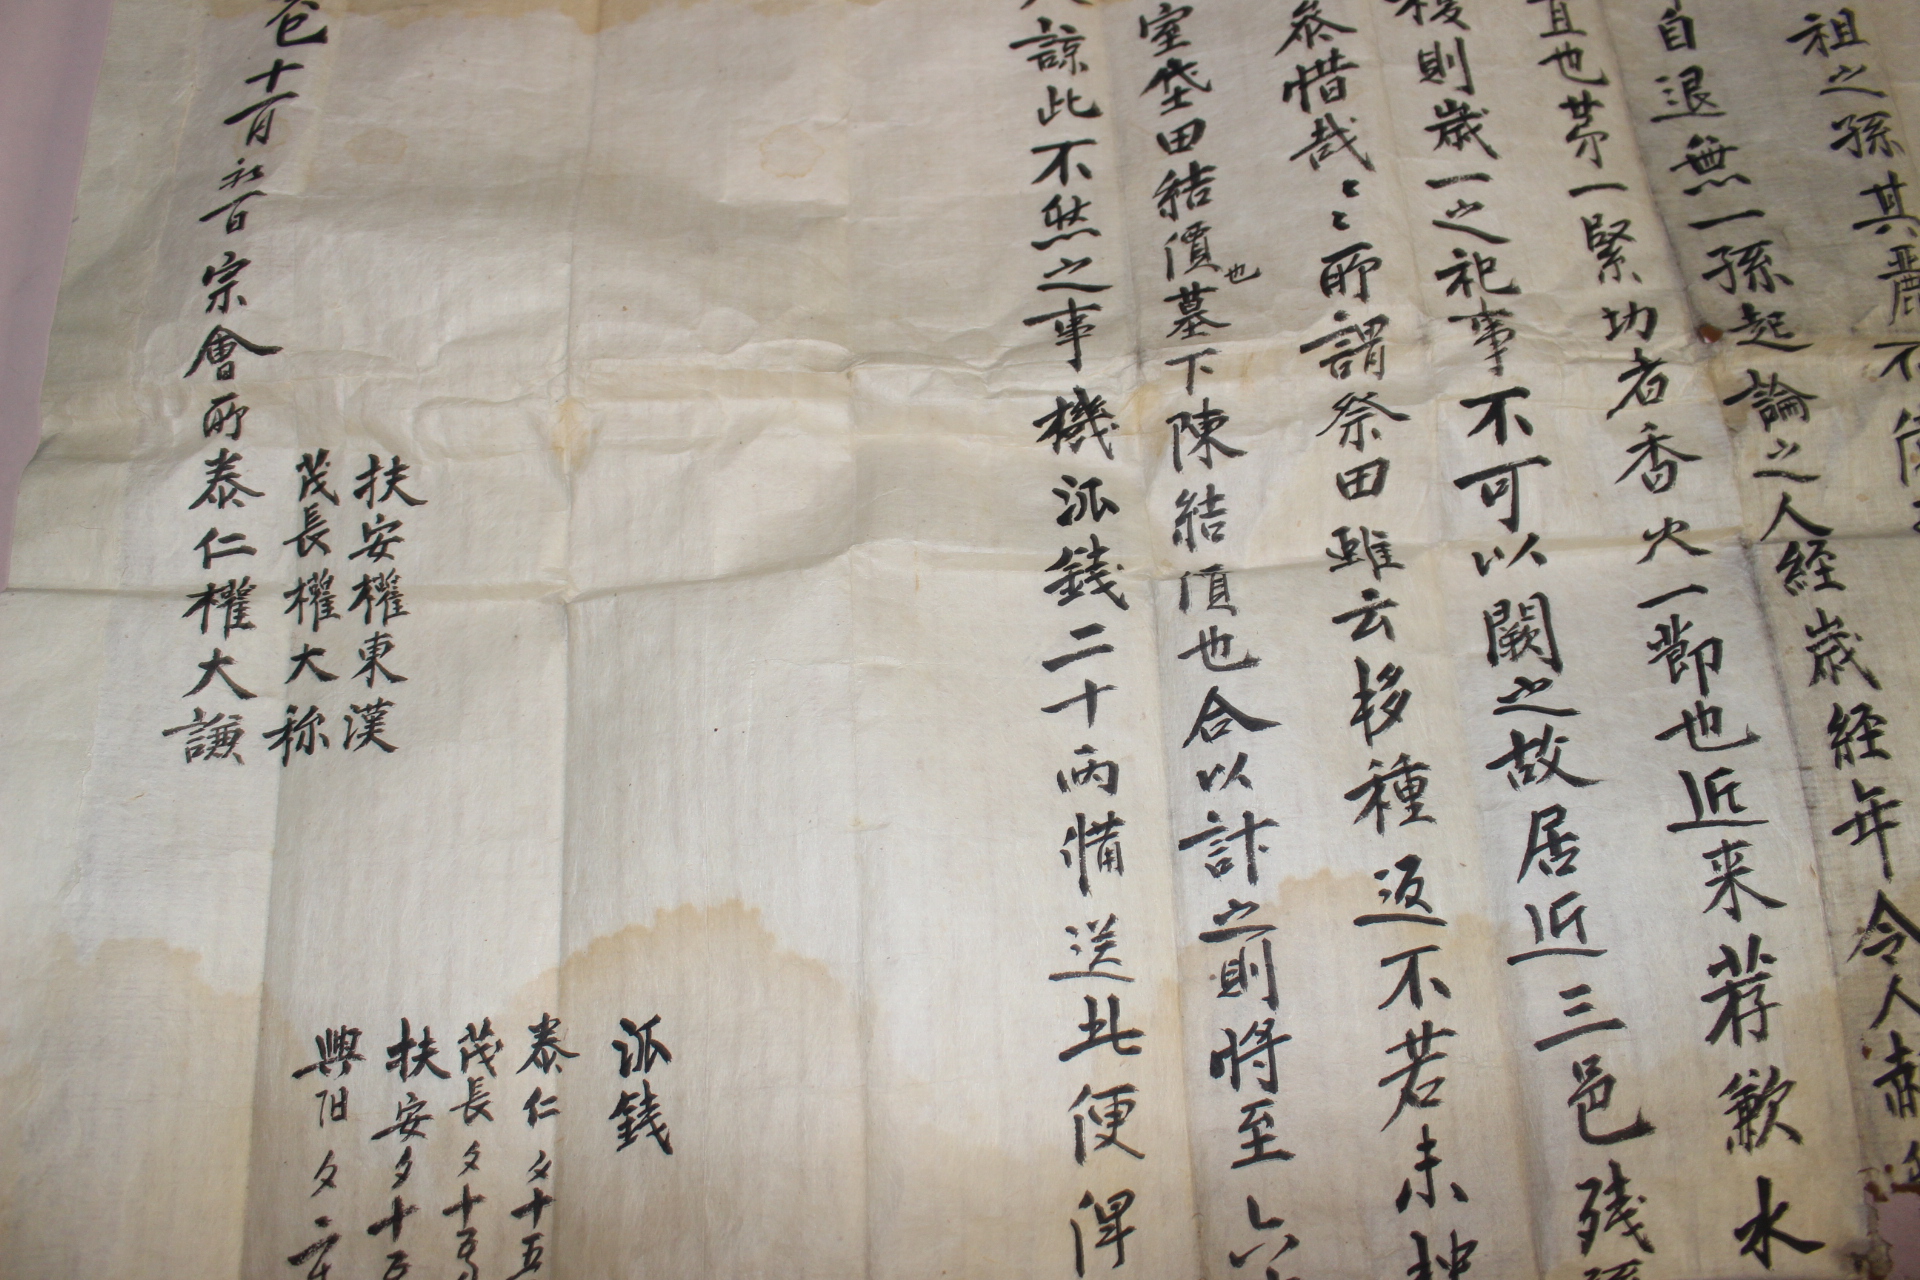 祖之孫其麗不
自退無一孫起論之人經歲經年令人
宜也第一緊功者香火一節也近来荐歉水
後則歲一之祀事不可以闕之故居近三邑残
恭惜哉〻〻所謂祭田雖云移種返不若未
室垈田結價也墓下陳結價也合以計之則將至六
諒此不然之事機派錢二十兩備送此便俾
派錢
泰仁 夕十五
茂長 夕十五
扶安 夕十五
興阳 夕二
扶安權東漢
茂長權大称
十一月初一日宗會所泰仁權大謙